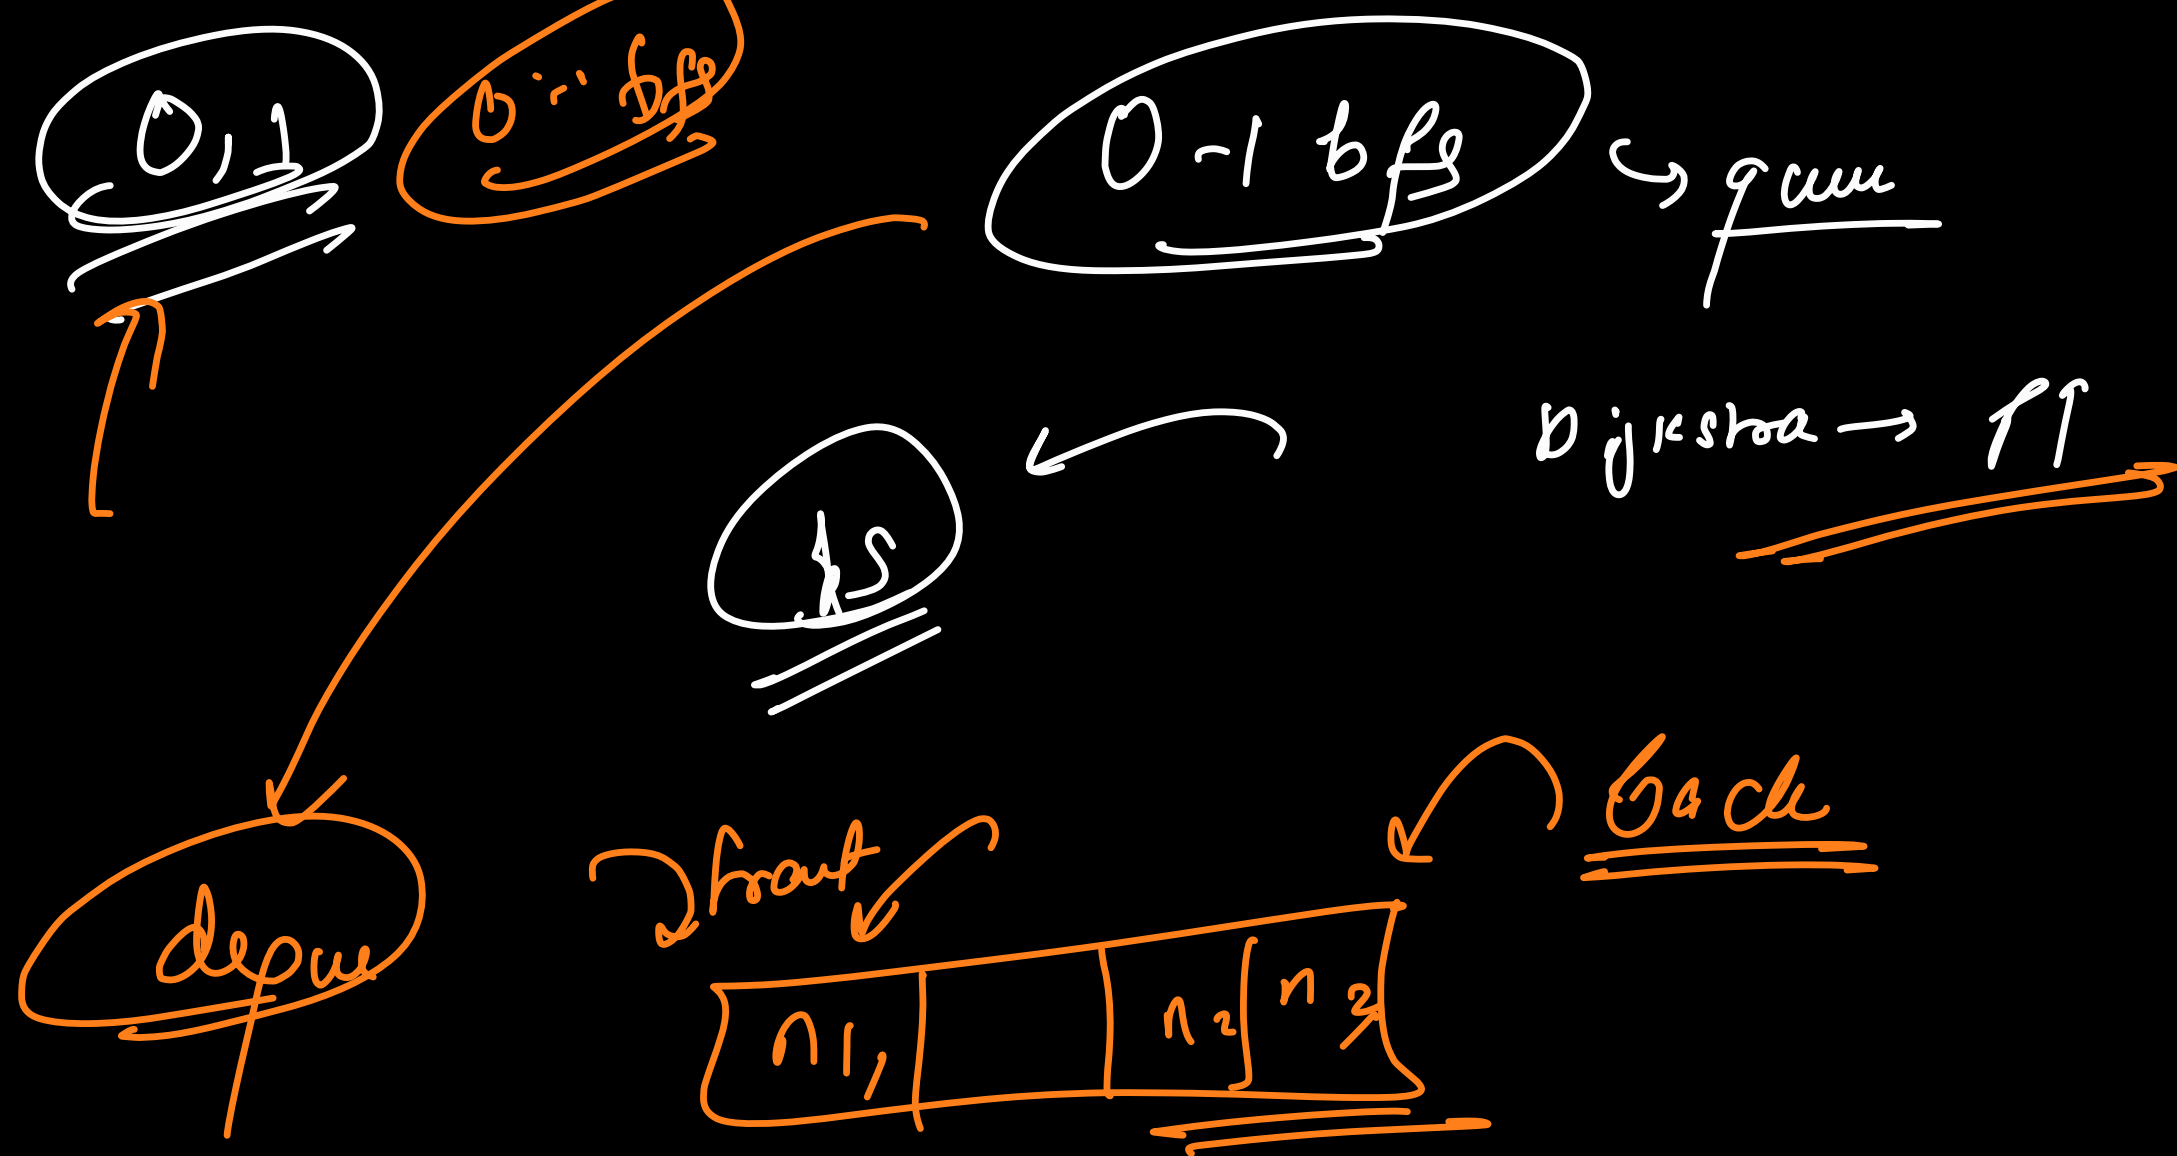 0,1
0-1 bfs
0-1 bfs
queue
Dijkstra →
deque
front
back
n1,
n2